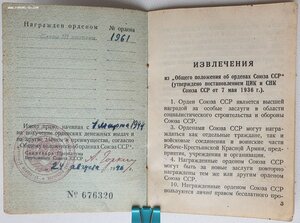 Награжден орденом
№ ордена
Славы III степени
1961
Имеет право, начиная с 1 марта 1944
на получение орденских денежных выдач и
на другие льготы и преимущества, согласно
"Общего положения об орденах Союза ССР".
24 августа
№ 676320
ИЗВЛЕЧЕНИЯ
из „Общего положения об орденах Союза ССР"
(утверждено постановлением ЦИК и СНК
Союза ССР от 7 мая 1936 г.).
1. Орден Союза ССР является высшей
наградой за особые заслуги в области
социалистического строительства и обороны
Союза ССР.
3. Орденами Союза ССР могут награ-
ждаться как отдельные граждане, так и
войсковые соединения и воинские части
Рабоче-Крестьянской Красной Армии, пред-
приятия, учреждения и организации.
4. Орденами Союза ССР могут быть
награждены за особые заслуги
10. Награжденные орденом Союза ССР
могут быть лишены ордена
3